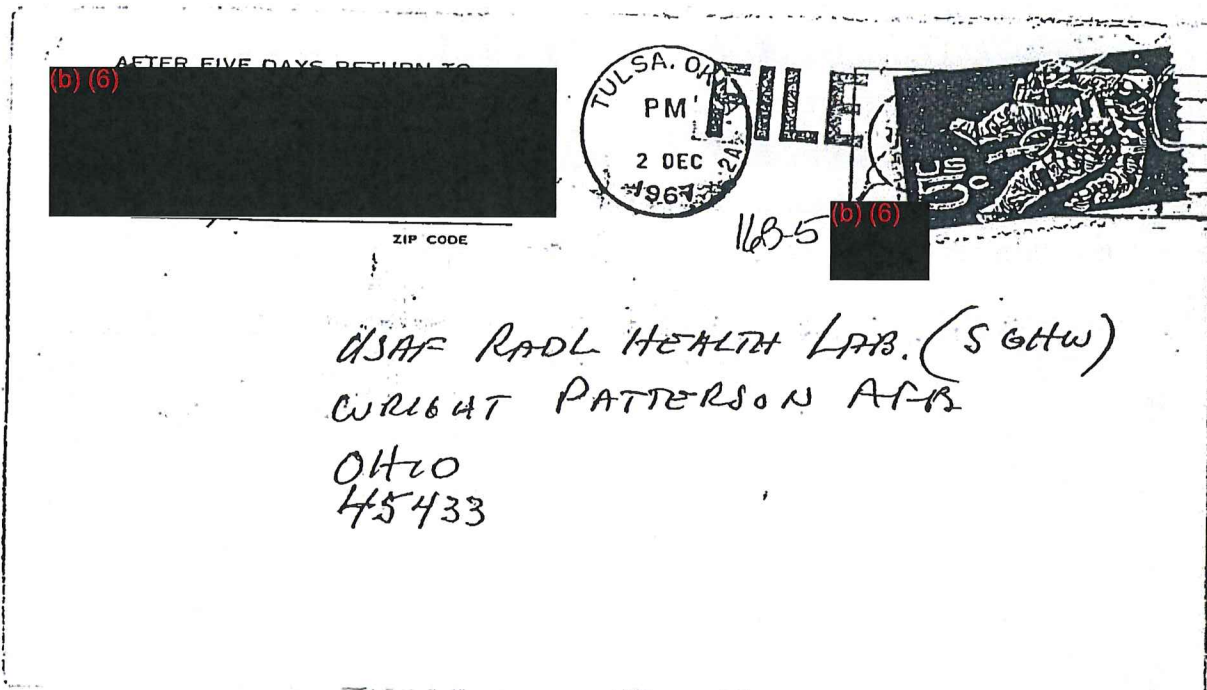 AFTER FIVE DAYS RETURN TO
(b) (6)
ZIP CODE
TULSA, OK
PM
2 DEC
1967
2A
FILE
5c
US
16B-5
(b) (6)
USAF RADL HEALTH LAB. (SGHW)
WRIGHT PATTERSON AFB
OHIO
45433